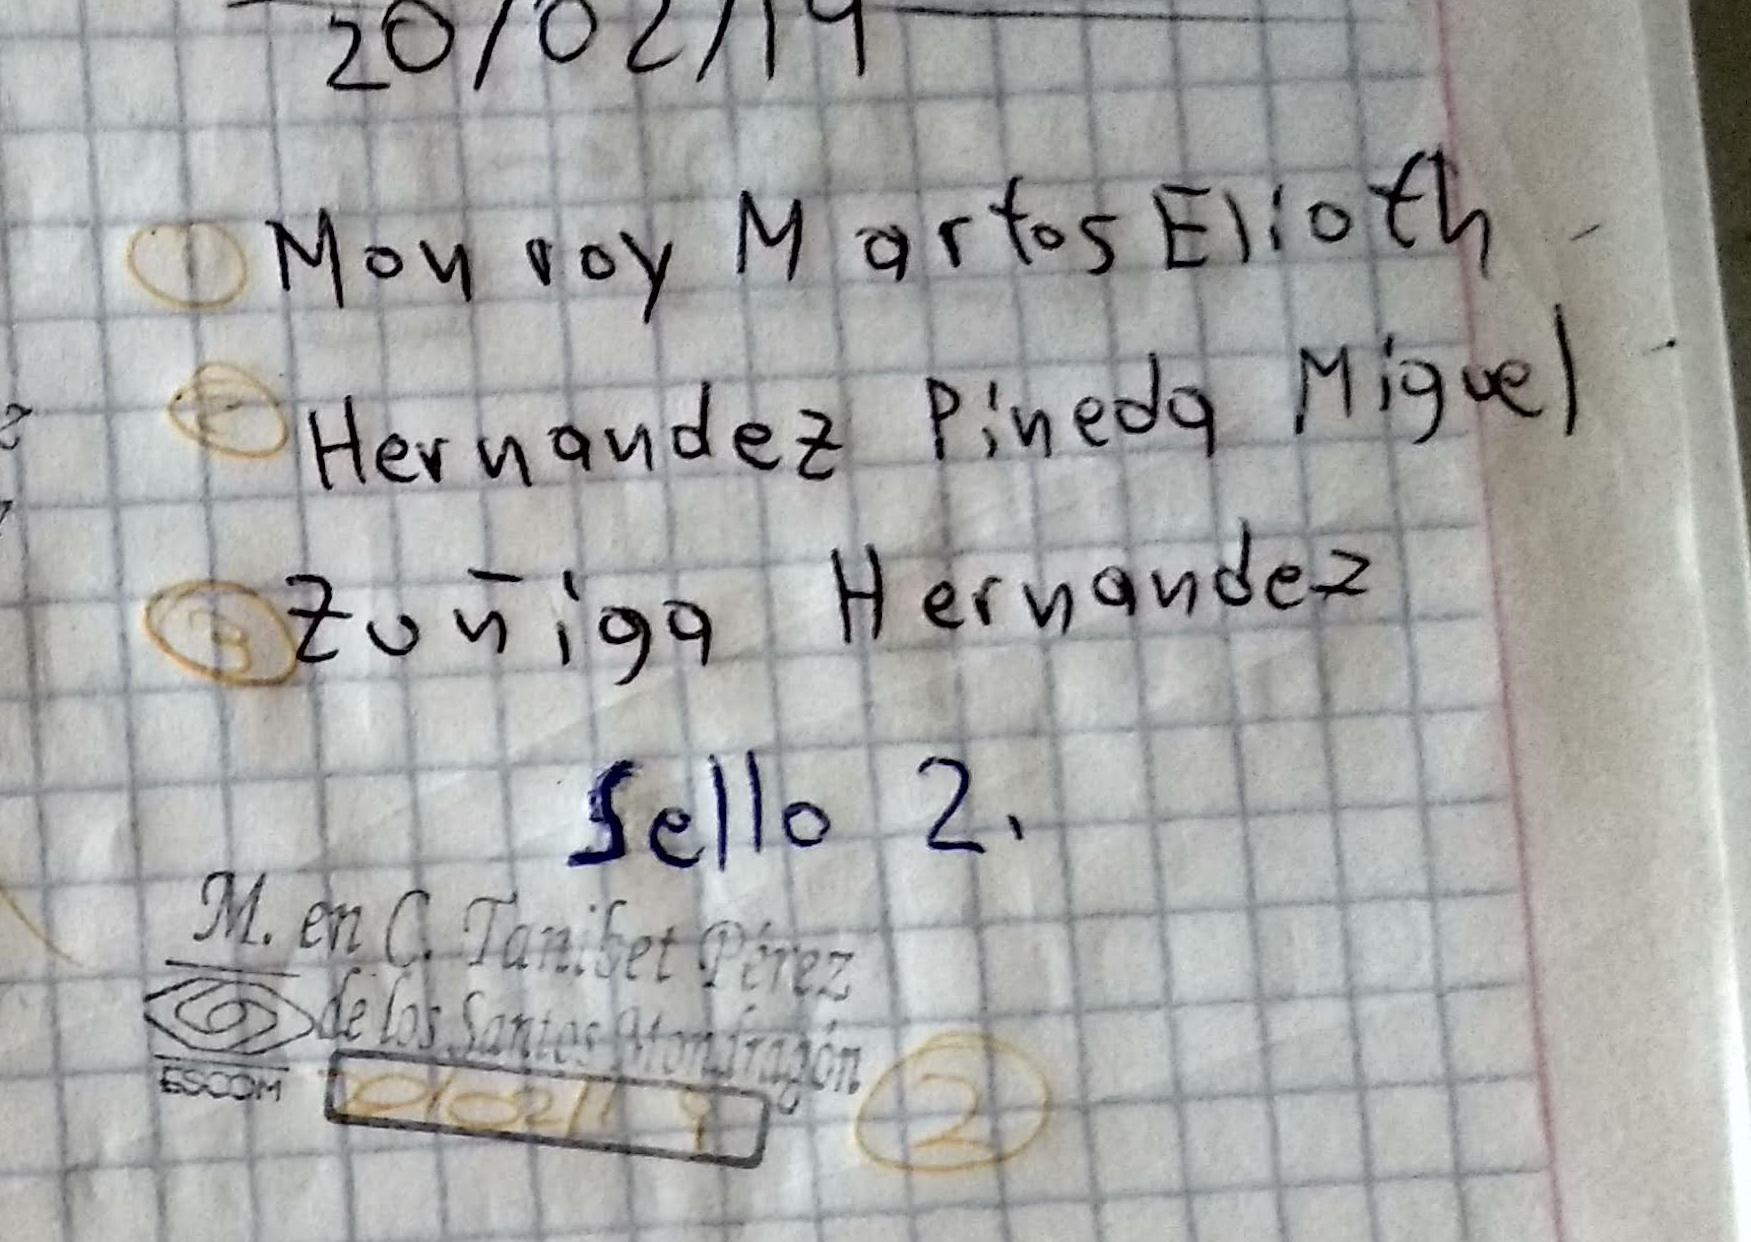 20/02/19
① Monroy Martos Elioth
② Hernandez Pineda Miguel
③ Zuñiga Hernandez
Sello 2.
M. en C. Tanibet Pérez
de los Santos Mondragón
ESCOM
20/02/19
②